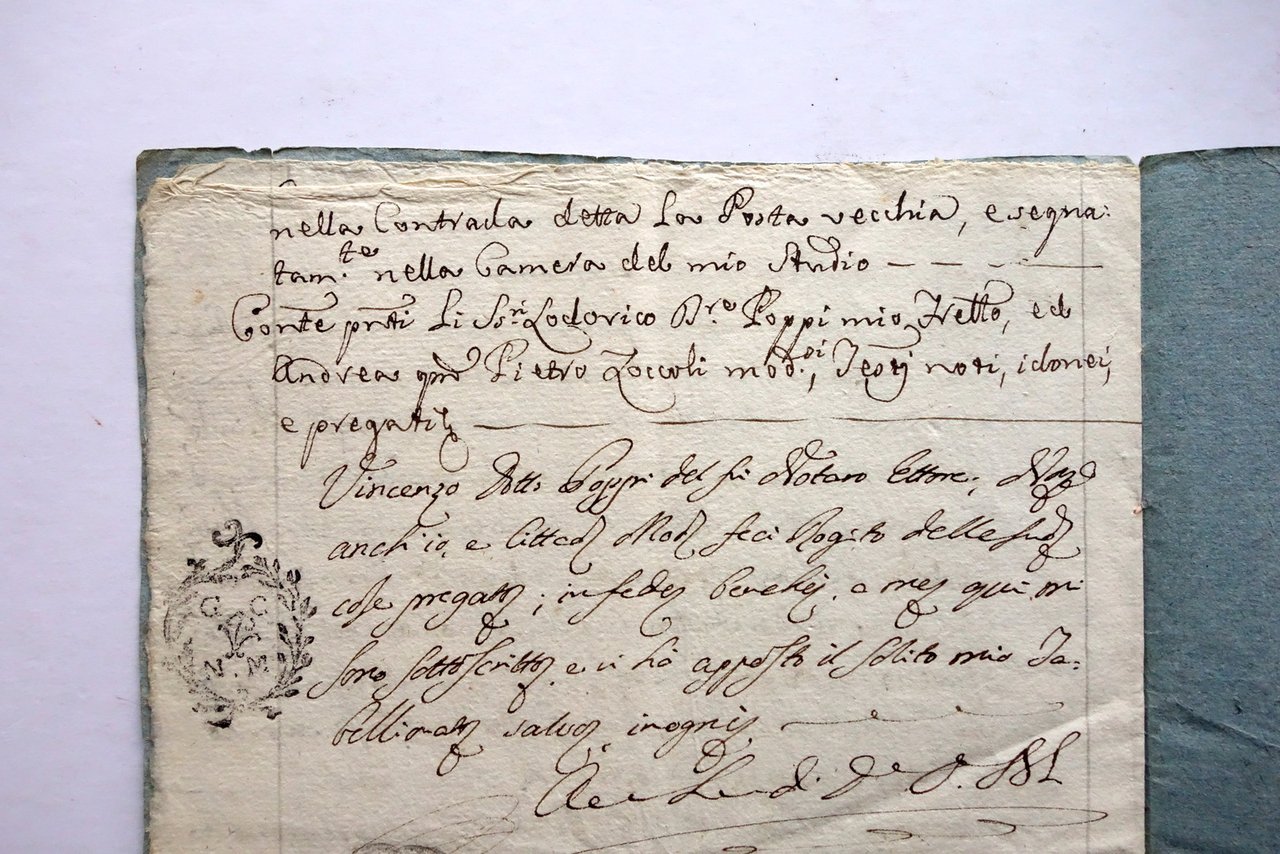 nella Contrada detta La Posta vecchia, e segna:
tam.te nella Camera del mio Studio
pnti Li Ssri Lodovico Dre Poppi mio Frello, ed
Andrea qm Pietro Zoccoli mod.si, Testj noti, idonei,
e pregati
Vincenzo Dottr Poppi del fu Notaro Ettore,
anch'io, e Cittad Mod feci Rogito delle sud
cose pregato; in fede, e mi
sono sottoscritto, e vi hò apposto il solito mio Ta-
bellionato salvo
G C
N. M